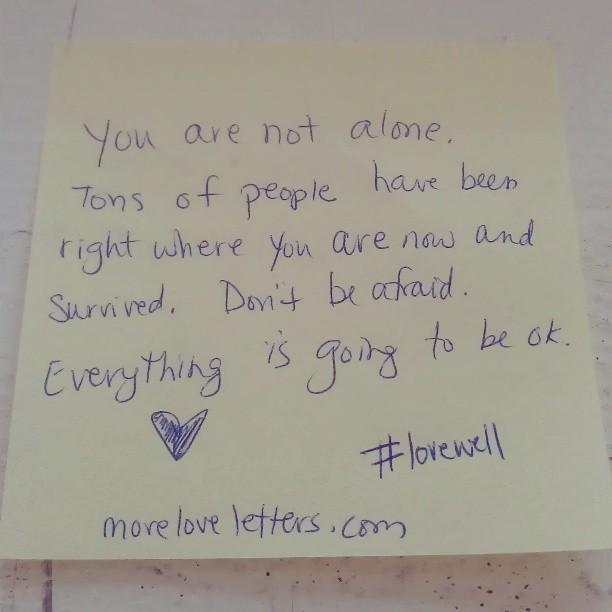 You are not alone.
Tons of people have been
right where you are now and
survived. Don't be afraid.
Everything is going to be ok.
#lovewell
moreloveletters.com